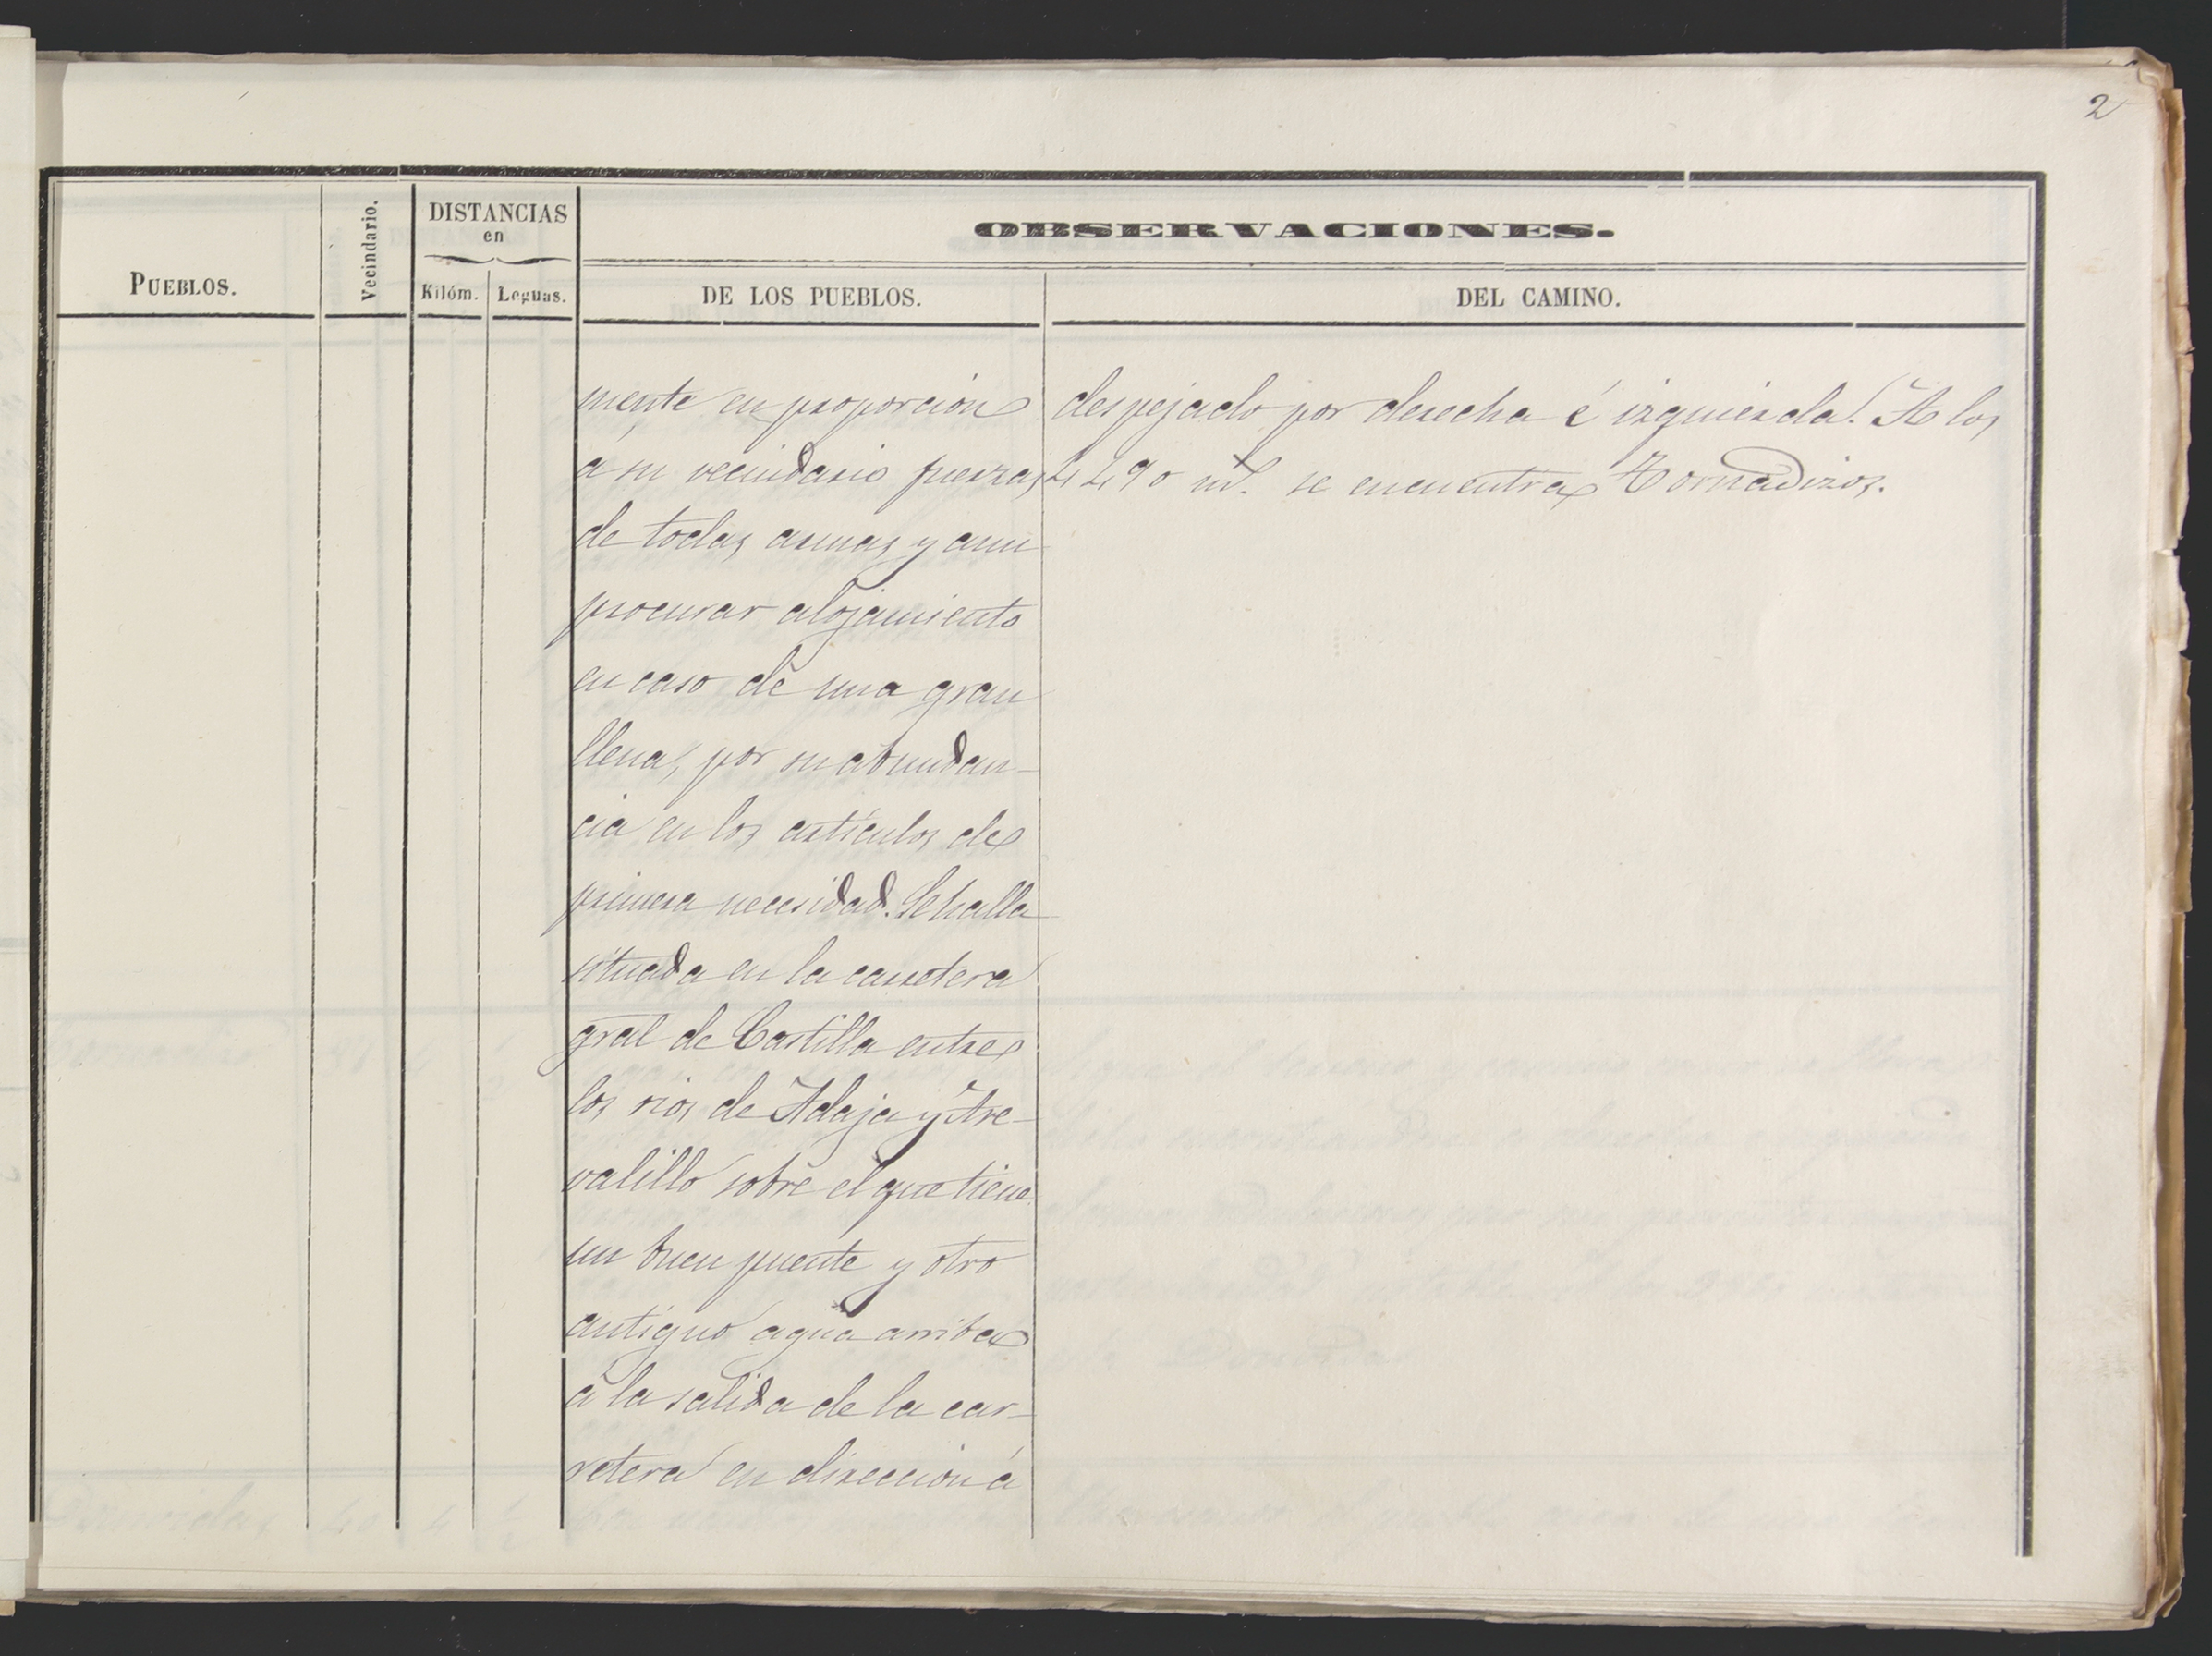 2
PUEBLOS.
Vecindario.
DISTANCIAS
en
Kilóm. Leguas.
OBSERVACIONES.
DE LOS PUEBLOS.
DEL CAMINO.
mente en proporcion
a su vecindario fuerzas
de todas armas y aun
procurar alojamiento
en caso de una gran
llena, por su abundan-
cia en los artículos de
primera necesidad. Se halla
situada en la carretera
gral de Castilla entre
los rios de Adaja y Are-
valillo sobre el que tiene
un buen puente y otro
antiguo agua arriba
á la salida de la car-
retera en direccion á
despejado por derecha é izquierda. A los
4490 m. se encuentra Tornadizos.